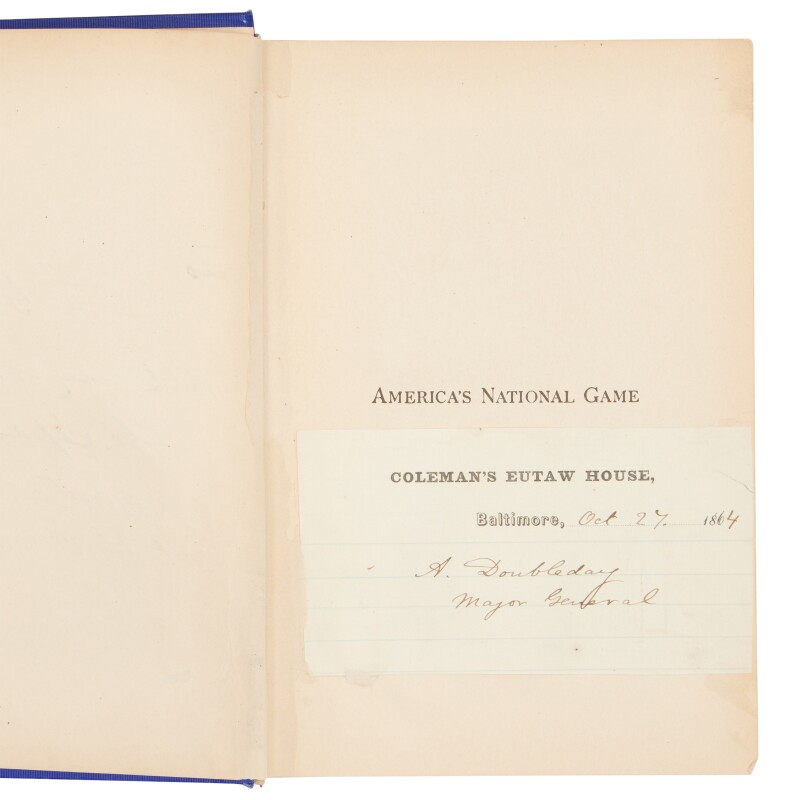 AMERICA'S NATIONAL GAME
COLEMAN'S EUTAW HOUSE,
Baltimore, Oct 27. 1864
A. Doubleday
Major General